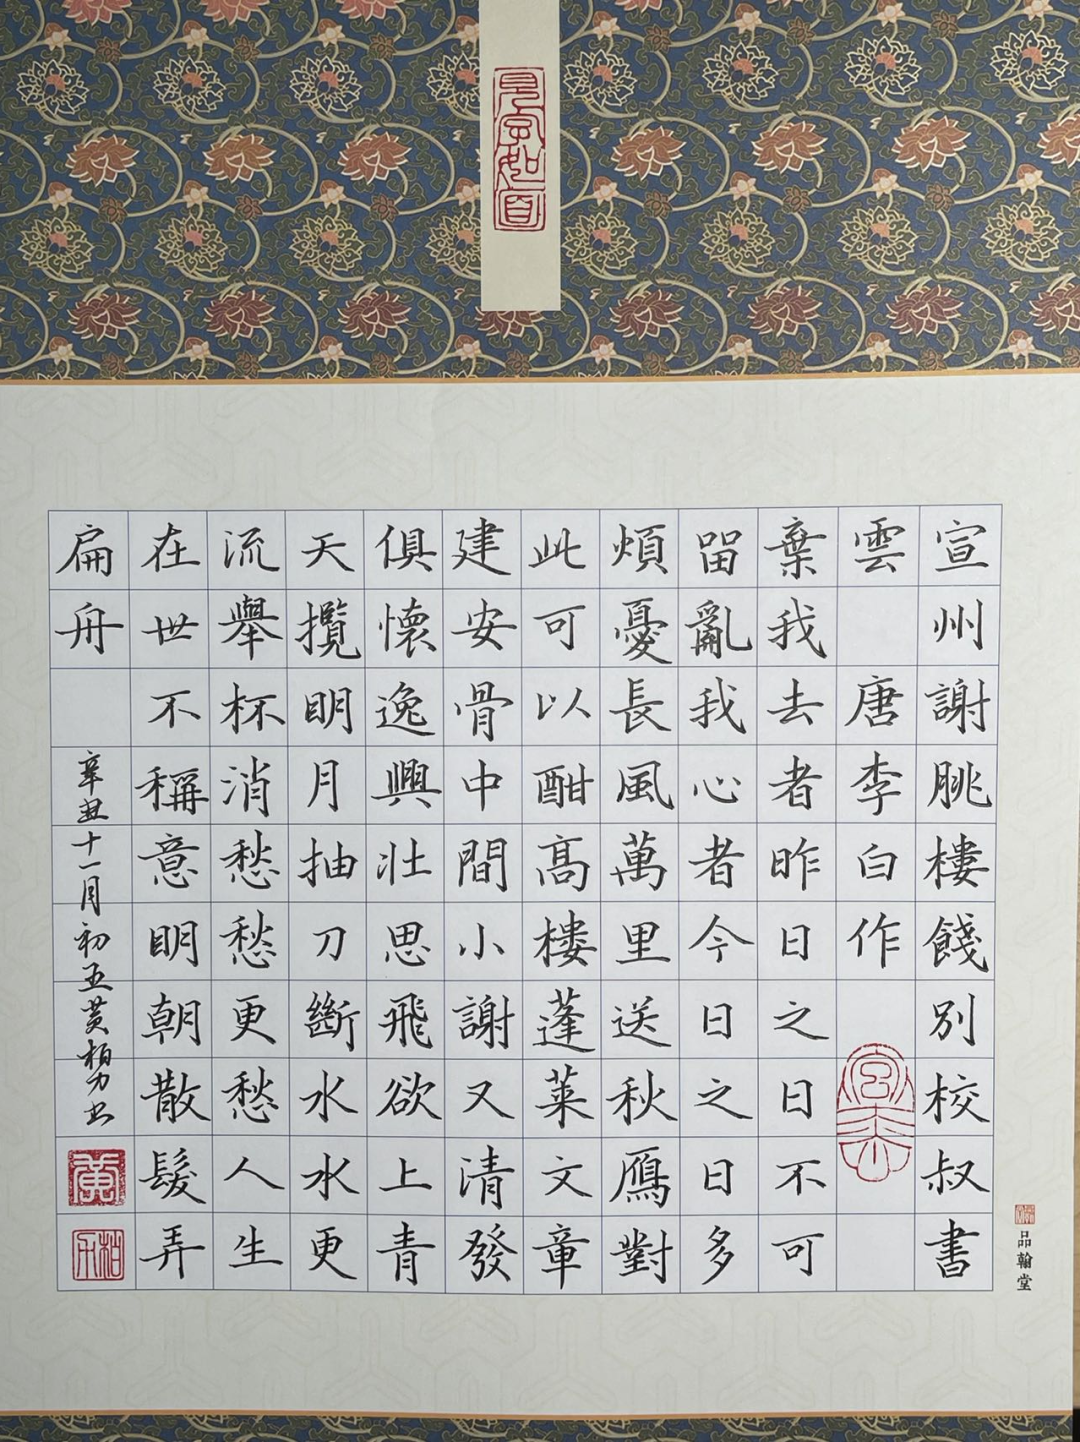 見字如面
宣州謝朓樓餞別校叔書
雲 唐李白作
棄我去者昨日之日不可
留亂我心者今日之日多
煩憂長風萬里送秋鴈對
此可以酣高樓蓬萊文章
建安骨中間小謝又清發
俱懷逸興壯思飛欲上青
天攬明月抽刀斷水水更
流舉杯消愁愁更愁人生
在世不稱意明朝散髮弄
扁舟 辛丑十一月初五黄柏力书
黃
品翰堂